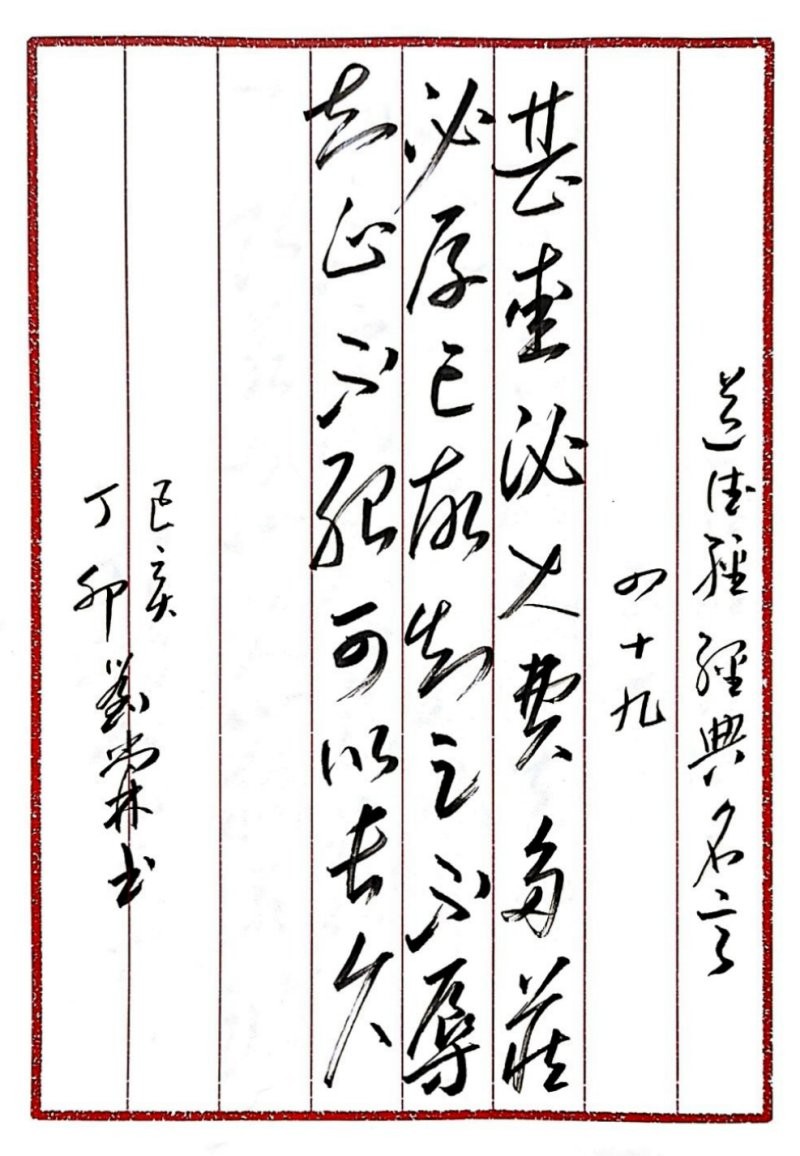 道德經經典名言
四十九
甚愛必大費多藏
必厚亡故知足不辱
知止不殆可以長久
己亥
丁卯 劉林書